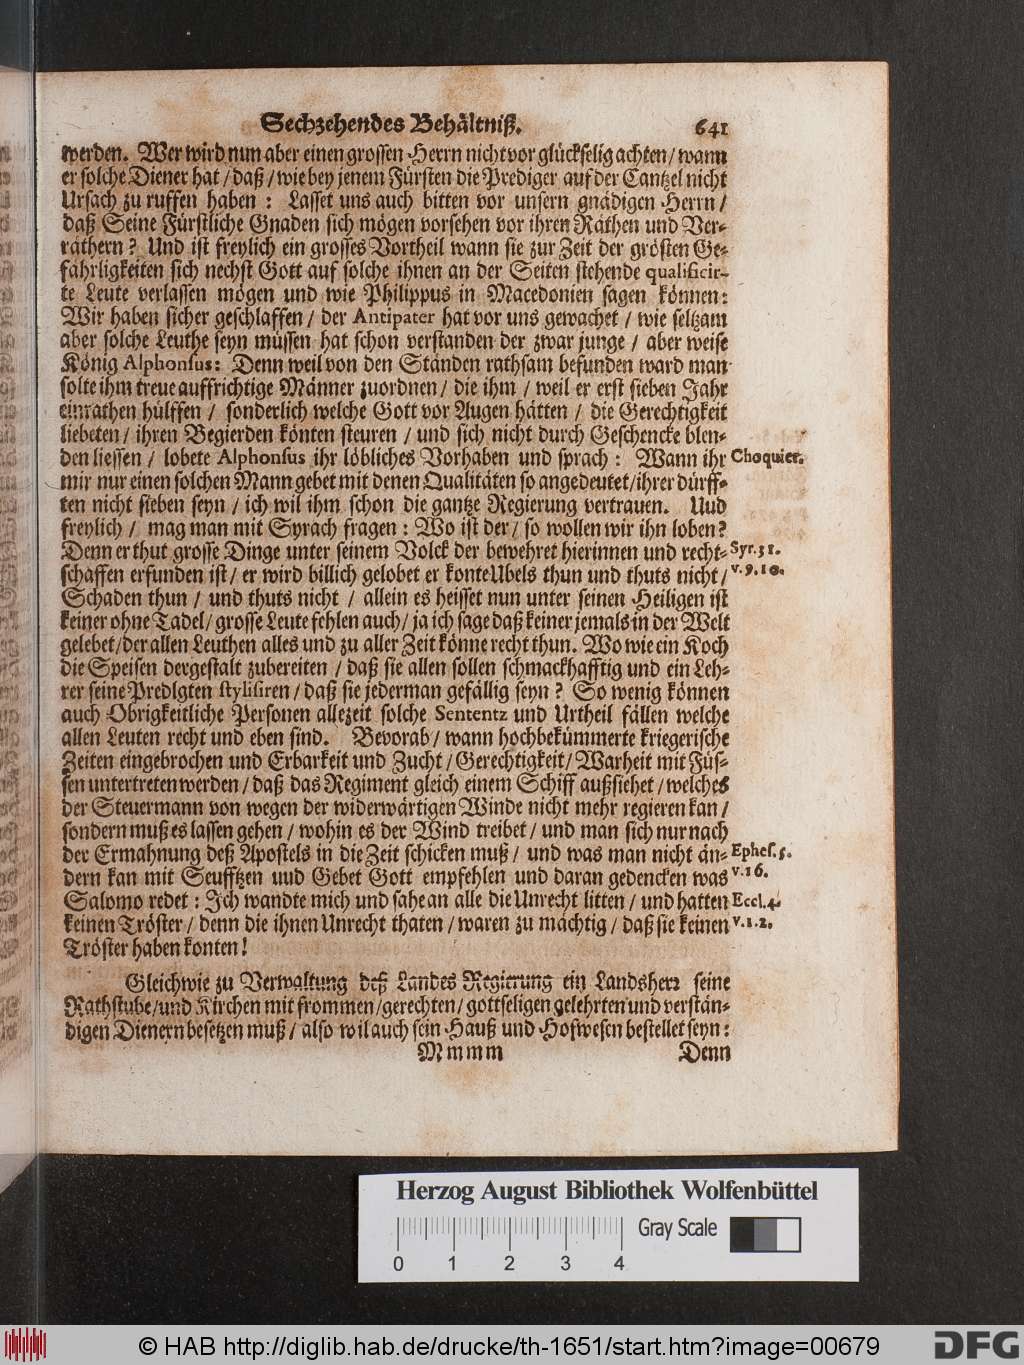 Sechzehendes Behältniß. 641
werden. Wer wird nun aber einen grossen Herrn nicht vor glückselig achten / wann
er solche Diener hat / daß / wie bey jenem Fürsten die Prediger auf der Cantzel nicht
Ursach zu ruffen haben : Lasset uns auch bitten vor unsern gnädigen Herrn /
daß Seine Fürstliche Gnaden sich mögen vorsehen vor ihren Räthen und Ver-
räthern? Und ist freylich ein grosses Vortheil wann sie zur Zeit der grösten Ge-
fährligkeiten sich nechst Gott auf solche ihnen an der Seiten stehende qualificir-
te Leute verlassen mögen und wie Philippus in Macedonien sagen können:
Wir haben sicher geschlaffen / der Antipater hat vor uns gewachet / wie seltzam
aber solche Leuthe seyn müssen hat schon verstanden der zwar junge / aber weise
König Alphonsus: Denn weil von den Ständen rathsam befunden ward man
solte ihm treue auffrichtige Männer zuordnen / die ihm / weil er erst sieben Jahr
einrathen hülffen / sonderlich welche Gott vor Augen hätten / die Gerechtigkeit
liebeten / ihren Begierden könten steuren / und sich nicht durch Geschencke blen-
den liessen / lobete Alphonsus ihr löbliches Vorhaben und sprach : Wann ihr Choquier.
mir nur einen solchen Mann gebet mit denen Qualitäten so angedeutet / ihrer dürff-
ten nicht sieben seyn / ich wil ihm schon die gantze Regierung vertrauen. Uud
freylich / mag man mit Syrach fragen : Wo ist der / so wollen wir ihn loben?
Denn er thut grosse Dinge unter seinem Volck der bewehret hierinnen und recht- Syr. 31.
schaffen erfunden ist / er wird billich gelobet er konte Ubels thun und thuts nicht / v. 9. 10.
Schaden thun / und thuts nicht / allein es heisset nun unter seinen Heiligen ist
keiner ohne Tadel / grosse Leute fehlen auch / ja ich sage daß keiner jemals in der Welt
gelebet / der allen Leuthen alles und zu aller Zeit könne recht thun. Wo wie ein Koch
die Speisen dergestalt zubereiten / daß sie allen sollen schmackhafftig und ein Leh-
rer seine Predlgten stylisiren / daß sie jederman gefällig seyn? So wenig können
auch Obrigkeitliche Personen allezeit solche Sententz und Urtheil fällen welche
allen Leuten recht und eben sind. Bevorab / wann hochbekümmerte kriegerische
Zeiten eingebrochen und Erbarkeit und Zucht / Gerechtigkeit / Warheit mit Füs-
sen untertreten werden / daß das Regiment gleich einem Schiff außsiehet / welches
der Steuermann von wegen der widerwärtigen Winde nicht mehr regieren kan /
sondern muß es lassen gehen / wohin es der Wind treibet / und man sich nur nach
der Ermahnung deß Apostels in die Zeit schicken muß / und was man nicht än- Ephes. 5.
dern kan mit Seufftzen uud Gebet Gott empfehlen und daran gedencken was v. 16.
Salomo redet : Ich wandte mich und sahe an alle die Unrecht litten / und hatten Eccl. 4.
keinen Tröster / denn die ihnen Unrecht thaten / waren zu mächtig / daß sie keinen v. 1. 2.
Tröster haben konten!
Gleichwie zu Verwaltung deß Landes Regierung ein Landsherr seine
Rathstube / und Kirchen mit frommen / gerechten / gottseligen gelehrten und verstän-
digen Dienern besetzen muß / also wil auch sein Hauß und Hofwesen bestellet seyn:
Mmmm Denn
Herzog August Bibliothek Wolfenbüttel
Gray Scale
0 1 2 3 4
© HAB http://diglib.hab.de/drucke/th-1651/start.htm?image=00679
DFG